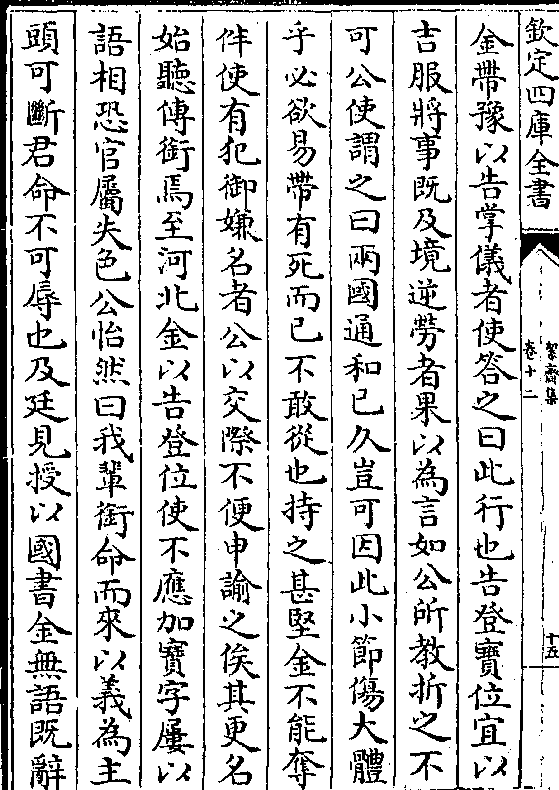 欽定四庫全書
絜齋集
卷十二
十五
金帶豫以告掌儀者使答之曰此行也告登寶位宜以
吉服將事既及境逆勞者果以為言如公所教折之不
可公使謂之曰兩國通和已久豈可因此小節傷大體
乎必欲易帶有死而已不敢從也持之甚堅金不能奪
伴使有犯御嫌名者公以交際不便申諭之俟其更名
始聽傳銜焉至河北金以告登位使不應加寶字屢以
語相恐官屬失色公怡然曰我輩銜命而來以義為主
頭可斷君命不可辱也及廷見授以國書金無語既辭